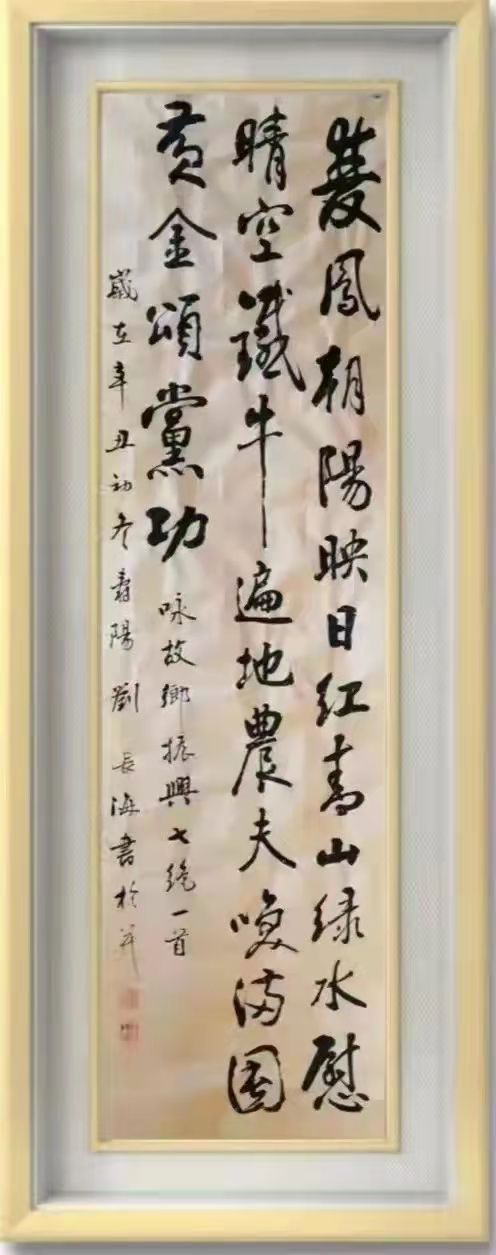 雙鳳朝陽映日紅青山綠水慰
晴空鐵牛遍地農夫喚滿園
黃金頌黨功
咏故鄉振興七絕一首
歲在辛丑初冬壽陽劉長海書於并